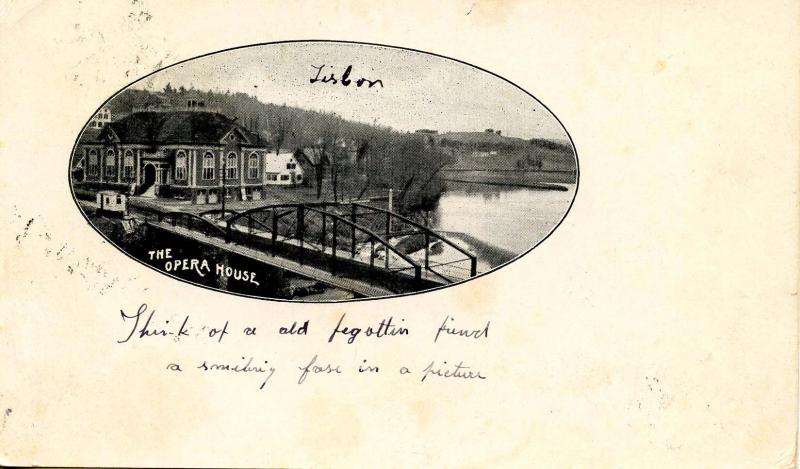 Lisbon
THE
OPERA HOUSE
Think of a old fegottin fiend
a smiling fase in a picture